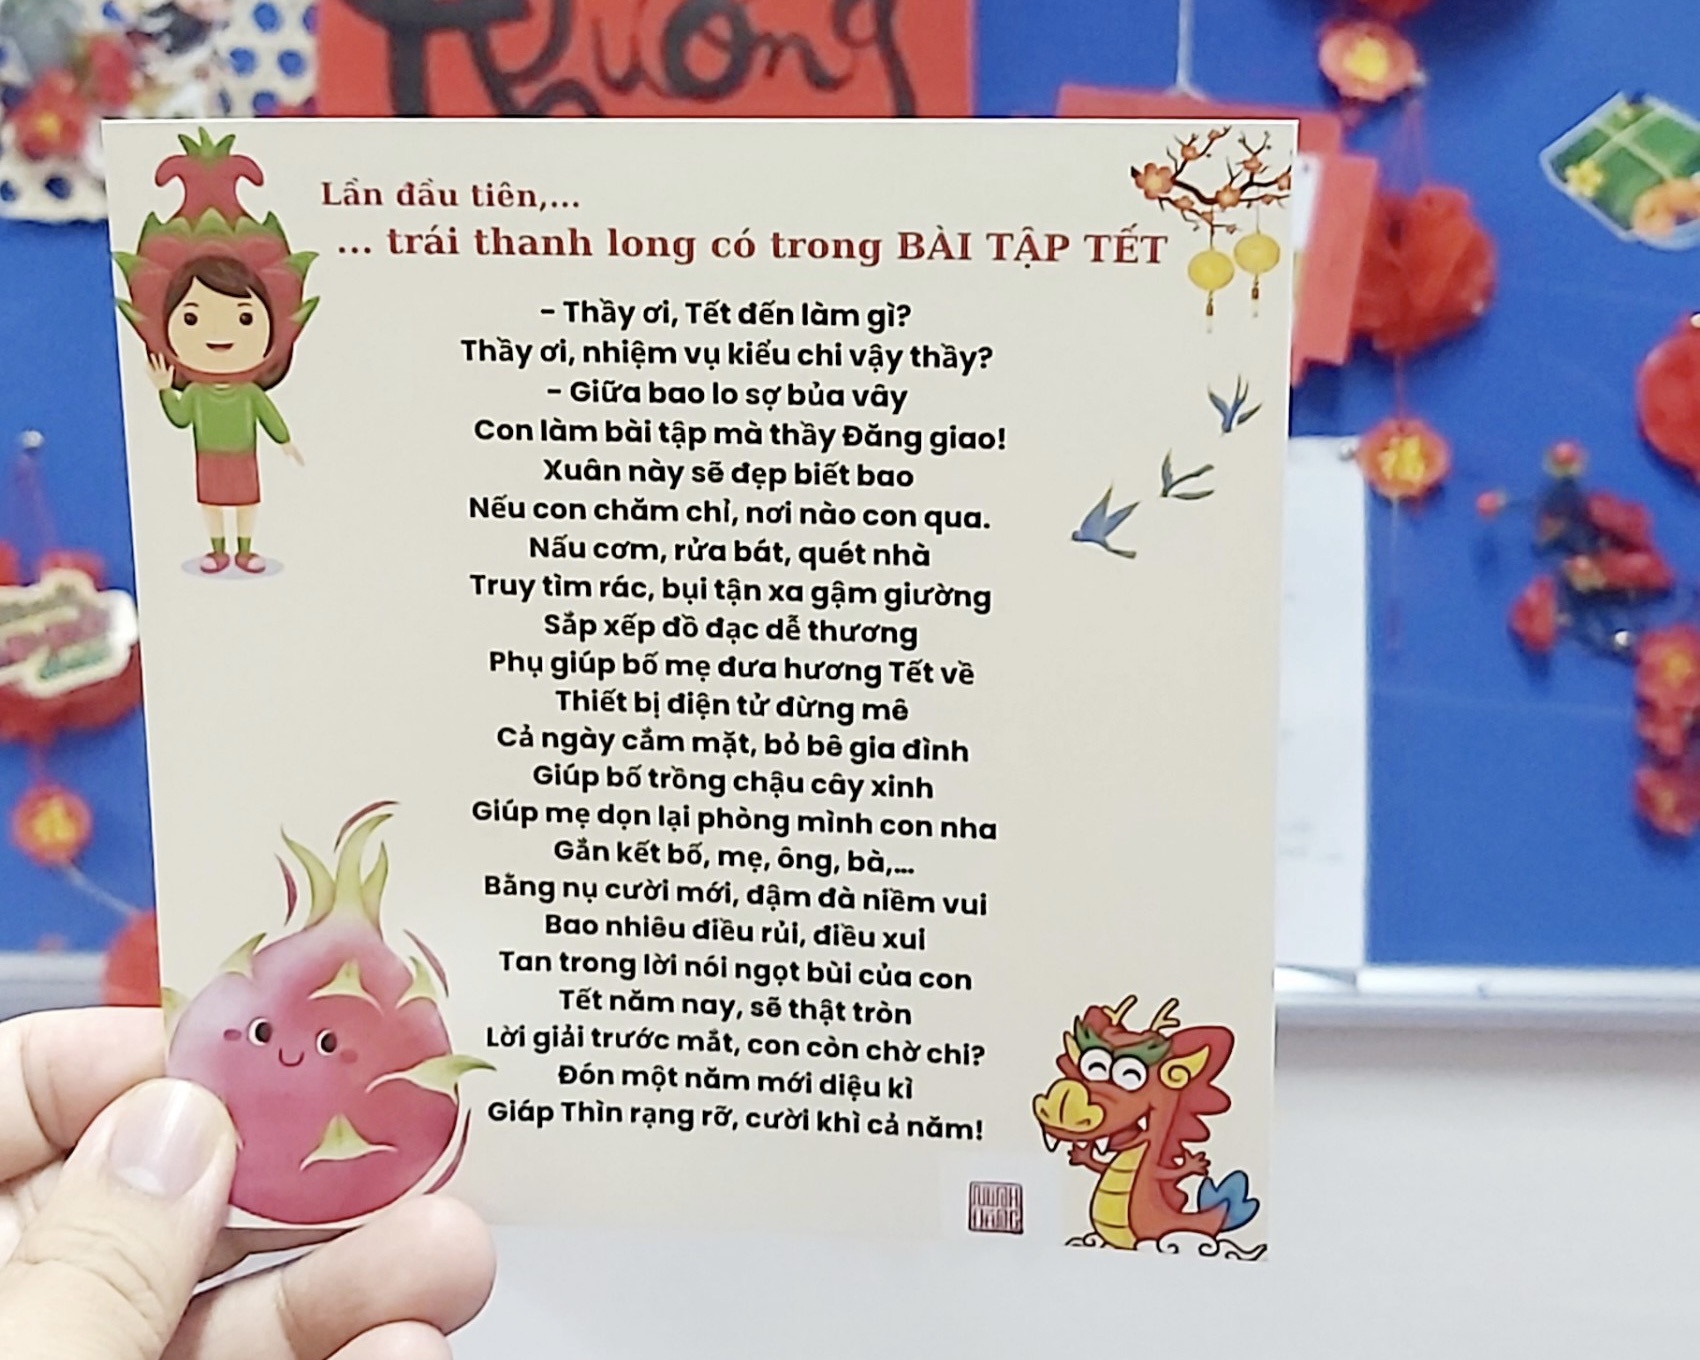 Thương
Lần đầu tiên,...
... trái thanh long có trong BÀI TẬP TẾT
- Thầy ơi, Tết đến làm gì?
Thầy ơi, nhiệm vụ kiểu chi vậy thầy?
- Giữa bao lo sợ bủa vây
Con làm bài tập mà thầy Đăng giao!
Xuân này sẽ đẹp biết bao
Nếu con chăm chỉ, nơi nào con qua.
Nấu cơm, rửa bát, quét nhà
Truy tìm rác, bụi tận xa gậm giường
Sắp xếp đồ đạc dễ thương
Phụ giúp bố mẹ đưa hương Tết về
Thiết bị điện tử đừng mê
Cả ngày cắm mặt, bỏ bê gia đình
Giúp bố trồng chậu cây xinh
Giúp mẹ dọn lại phòng mình con nha
Gắn kết bố, mẹ, ông, bà,...
Bằng nụ cười mới, đậm đà niềm vui
Bao nhiêu điều rủi, điều xui
Tan trong lời nói ngọt bùi của con
Tết năm nay, sẽ thật tròn
Lời giải trước mắt, con còn chờ chi?
Đón một năm mới diệu kì
Giáp Thìn rạng rỡ, cười khì cả năm!